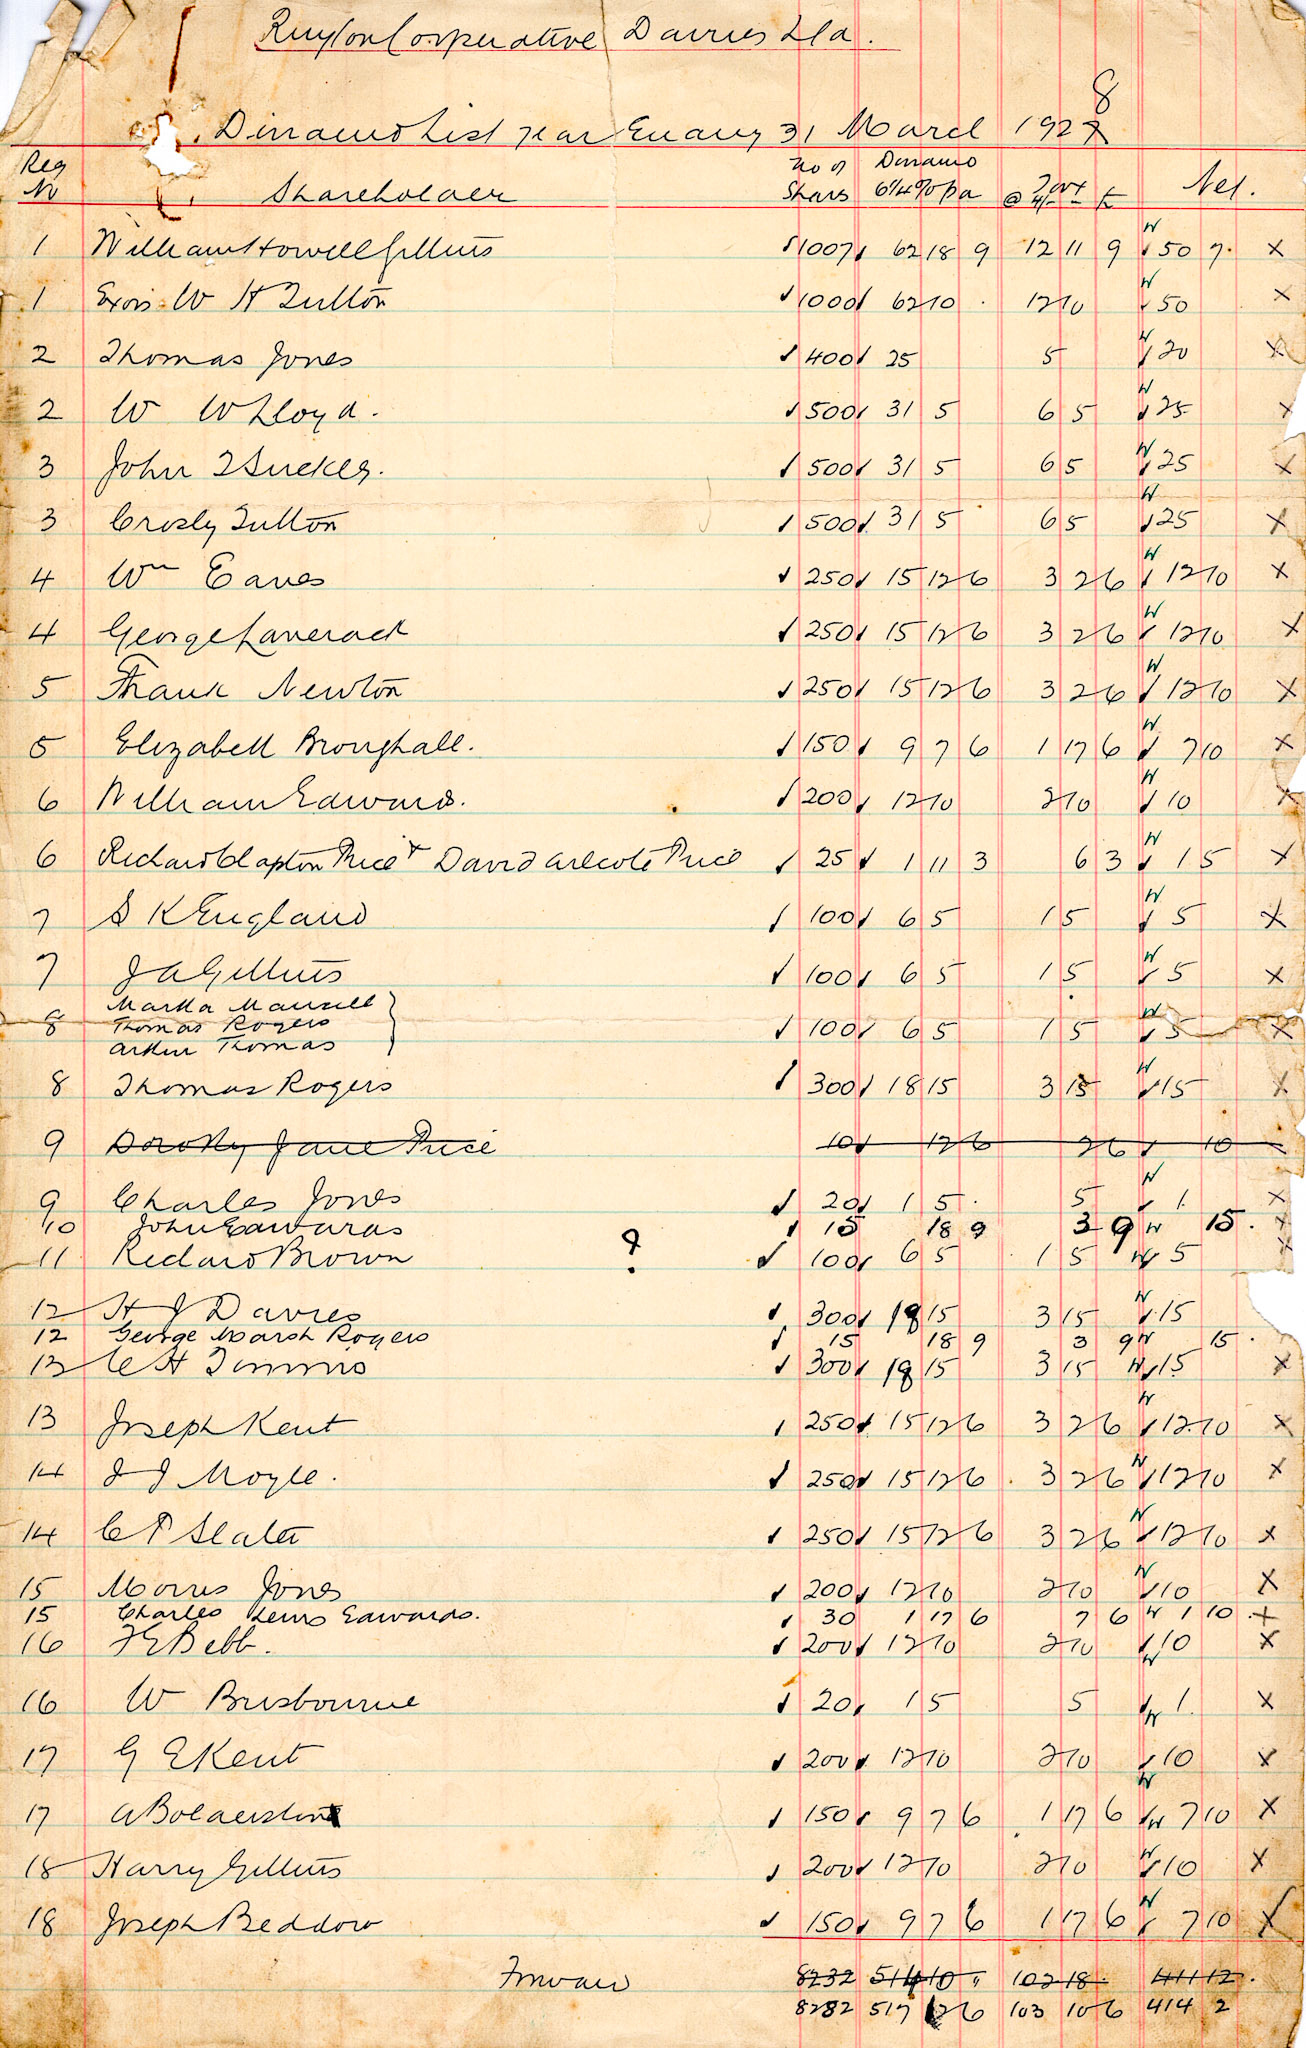 Ruyton Cooperative Dairies Ltd.
Dividend List year Ending 31 March 1928
Reg No Shareholder No of Shares Dividend 6¼% pa Tax @ 4/- in £ Net.
1 William Howell Gittins 1007 62 18 9 12 11 9 W 50 7 . X
1 Exors W H Sutton 1000 62 10 . 12 10 W 50 X
2 Thomas Jones 400 25 5 W 20 X
2 W W Lloyd. 500 31 5 6 5 W 25 X
3 John T 500 31 5 6 5 W 25 X
3 Crosby Sutton 500 31 5 6 5 W 25 X
4 Wm Eaves 250 15 12 6 3 2 6 W 12 10 X
4 George Laverack 250 15 12 6 3 2 6 W 12 10 X
5 Frank Newton 250 15 12 6 3 2 6 W 12 10 X
5 Elizabeth Broughall. 150 9 7 6 1 17 6 W 7 10 X
6 William Edwards. 200 12 10 2 10 W 10 X
6 Richard Clapton Price & David Price 25 1 11 3 6 3 W 1 5 X
7 S K England 100 6 5 1 5 W 5 X
7 J A Gittins 100 6 5 1 5 W 5 X
Martha Mansell
8 Thomas Rogers 100 6 5 1 5 W 5 X
Arthur Thomas
8 Thomas Rogers 300 18 15 3 15 W 15 X
9 Dorothy Jane Price 10 12 6 2 6 10
9 Charles Jones 20 1 5 . 5 W 1 X
10 John Edwards 15 18 9 3 9 W 15 . X
11 Richard Brown ? 100 6 5 1 5 W 5 X
12 H J Davies 300 18 15 3 15 W 15
12 George Marsh Rogers 15 18 9 3 9 W 15 .
13 C H Timmis 300 18 15 3 15 W 15 X
13 Joseph Kent 250 15 12 6 3 2 6 W 12 10 X
14 J J Moyle. 250 15 12 6 3 2 6 W 12 10 X
14 C P Slater 250 15 12 6 3 2 6 W 12 10 X
15 Morris Jones 200 12 10 2 10 W 10 X
15 Charles Lewis Edwards. 30 1 17 6 7 6 W 1 10 . X
16 F E Bebb. 200 12 10 2 10 W 10 X
16 W Brisbourne 20 1 5 5 W 1 X
17 G E Kent 200 12 10 2 10 W 10 X
17 A Bolderstone 150 9 7 6 1 17 6 W 7 10 X
18 Harry Gittins 200 12 10 2 10 W 10 X
18 Joseph Beddow 150 9 7 6 1 17 6 W 7 10 X
Forward 8232 514 10 " 102 18 . 411 12 .
8282 517 12 6 103 10 6 414 2